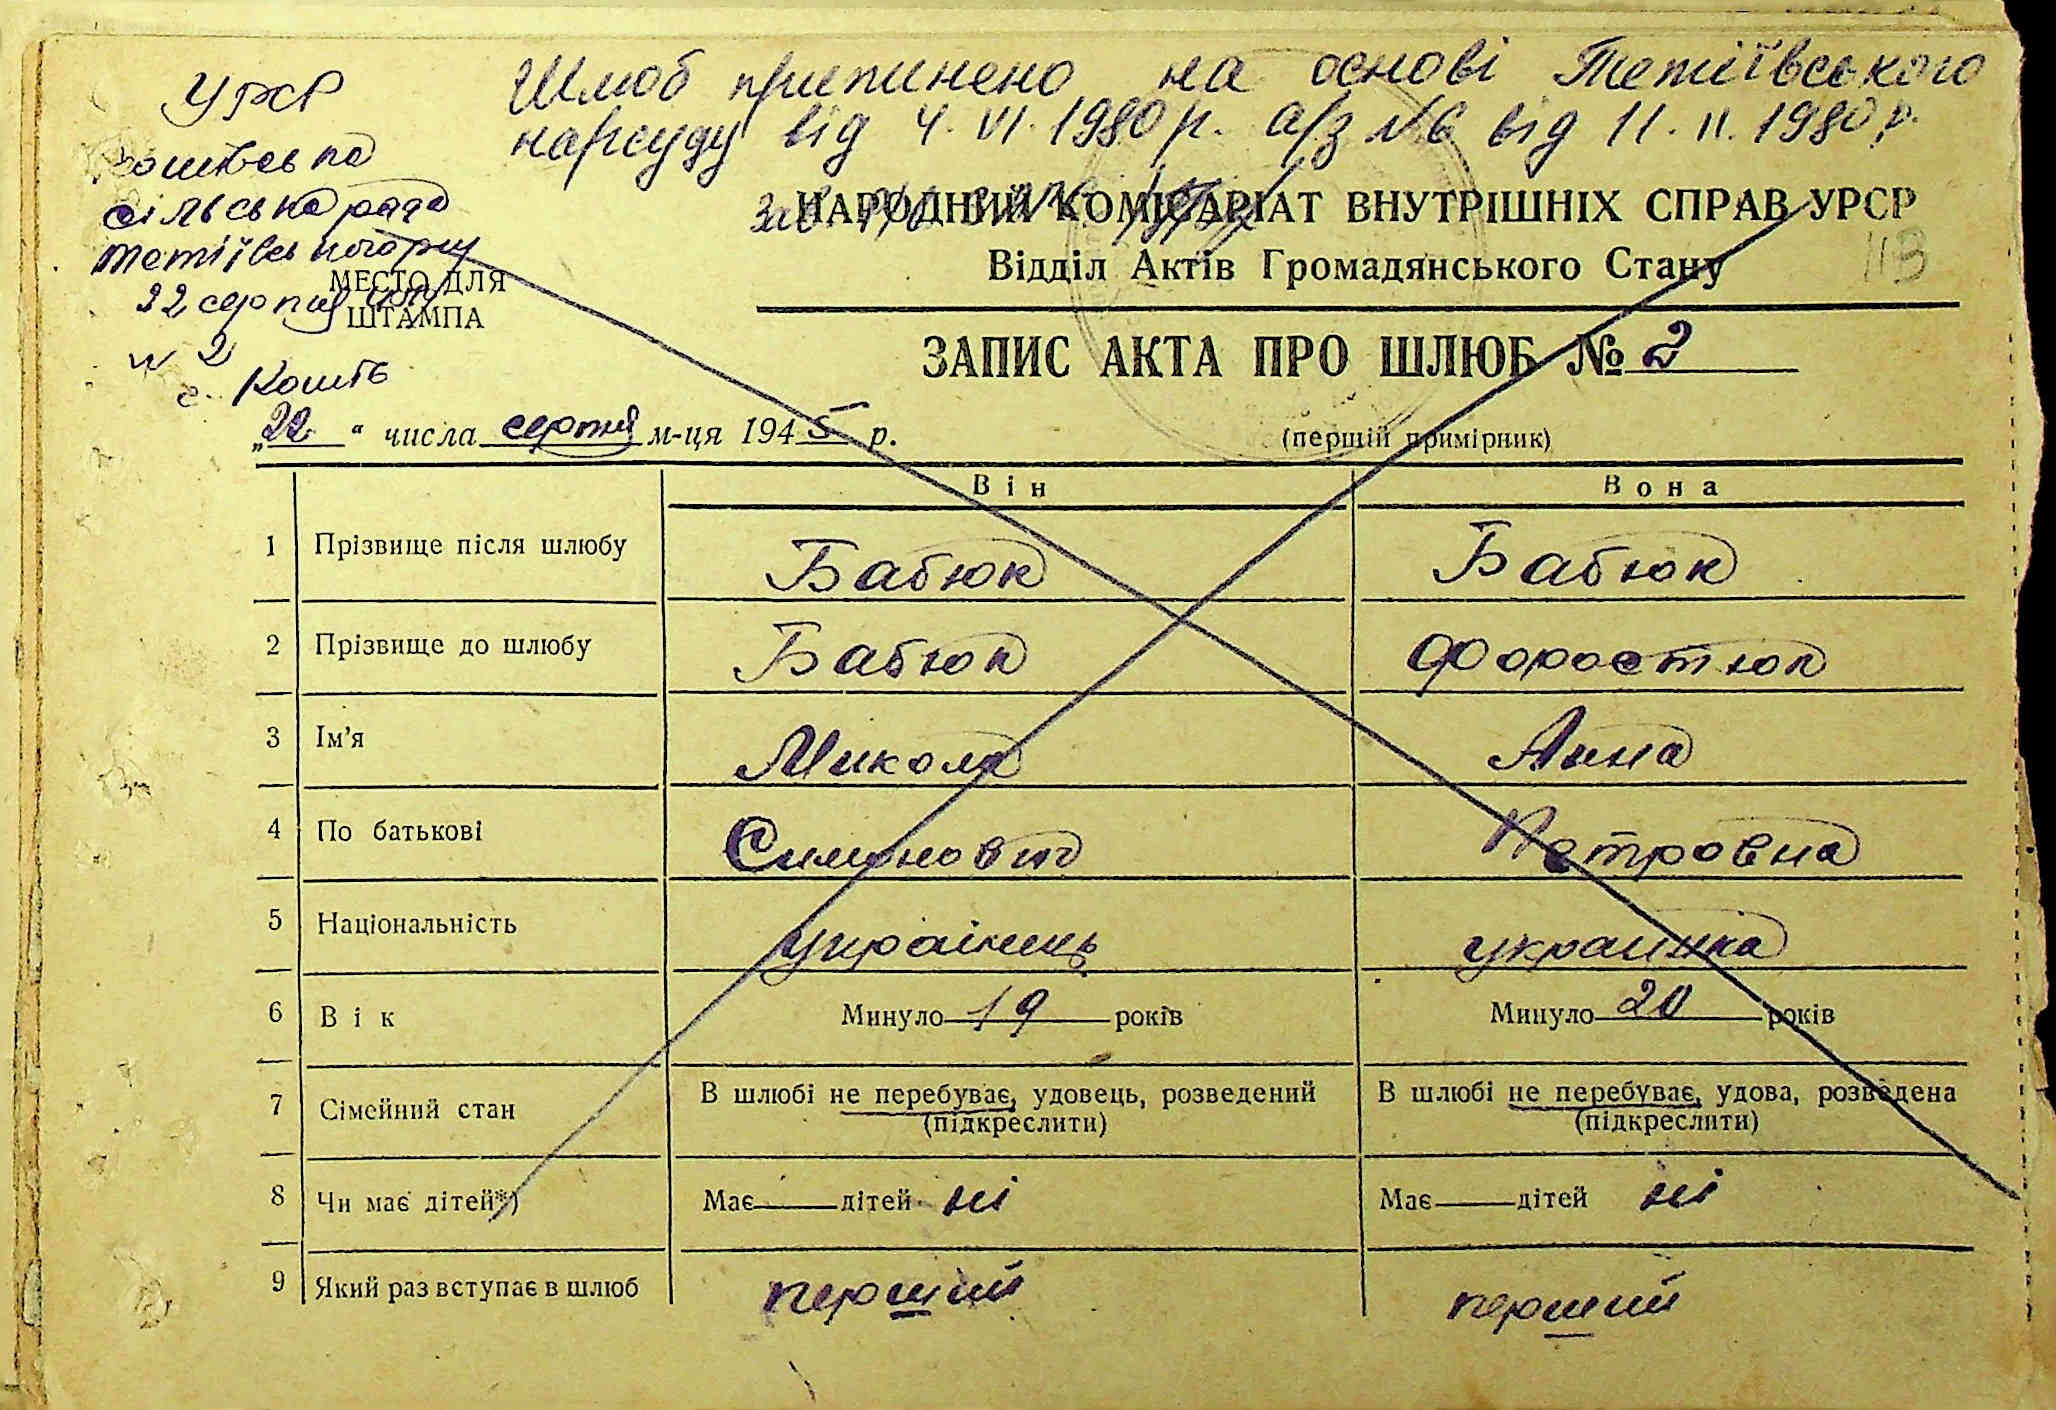 УРСР
Шлюб припинено на основі Тетіївського
нарсуду від 4. VI. 1980 р. а/з №6 від 11. II. 1980 р.
Кошівська
сільська рада
Тетіївського р-ну
22 серпня
МЕСТО ДЛЯ
ШТАМПА
№ 2
с. Кошів
НАРОДНИЙ КОМІСАРІАТ ВНУТРІШНІХ СПРАВ УРСР
113
Відділ Актів Громадянського Стану
ЗАПИС АКТА ПРО ШЛЮБ № 2
„22“ числа серпня м-ця 1945 р.
(перший примірник)
Він Вона
1 Прізвище після шлюбу Бабюк Бабюк
2 Прізвище до шлюбу Бабюк Форостюк
3 Ім’я Микола Анна
4 По батькові Симонович Петровна
5 Національність українець українка
6 Вік Минуло 19 років Минуло 20 років
7 Сімейний стан В шлюбі не перебуває, удовець, розведений В шлюбі не перебуває, удова, розведена
(підкреслити) (підкреслити)
8 Чи має дітей*) Має дітей ні Має дітей ні
9 Який раз вступає в шлюб перший перший